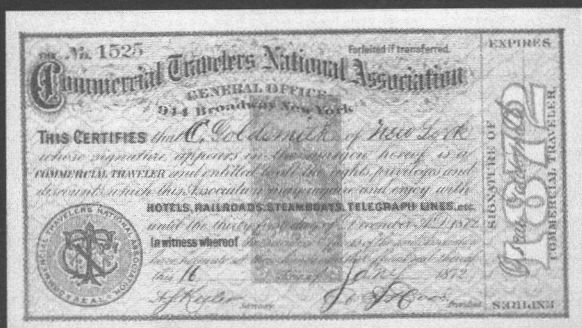 THE No. 1525 Forfeited if transferred.
Commercial Travelers National Association
GENERAL OFFICE
944 Broadway New York
THIS CERTIFIES that C. Goldsmith of New York
whose signature appears in the margin hereof is a
COMMERCIAL TRAVELER and entitled to all the rights, privileges and
discounts which this Association may acquire and enjoy with
HOTELS, RAILROADS, STEAMBOATS, TELEGRAPH LINES, etc.
until the thirty first day of December A.D. 1872
In witness whereof
this 16 day of Jany 1872
Secretary President
COMMERCIAL TRAVELERS NATIONAL ASSOCIATION
SEAL
EXPIRES
1872
SIGNATURE OF
Goldsmith
COMMERCIAL TRAVELER.
EXPIRES